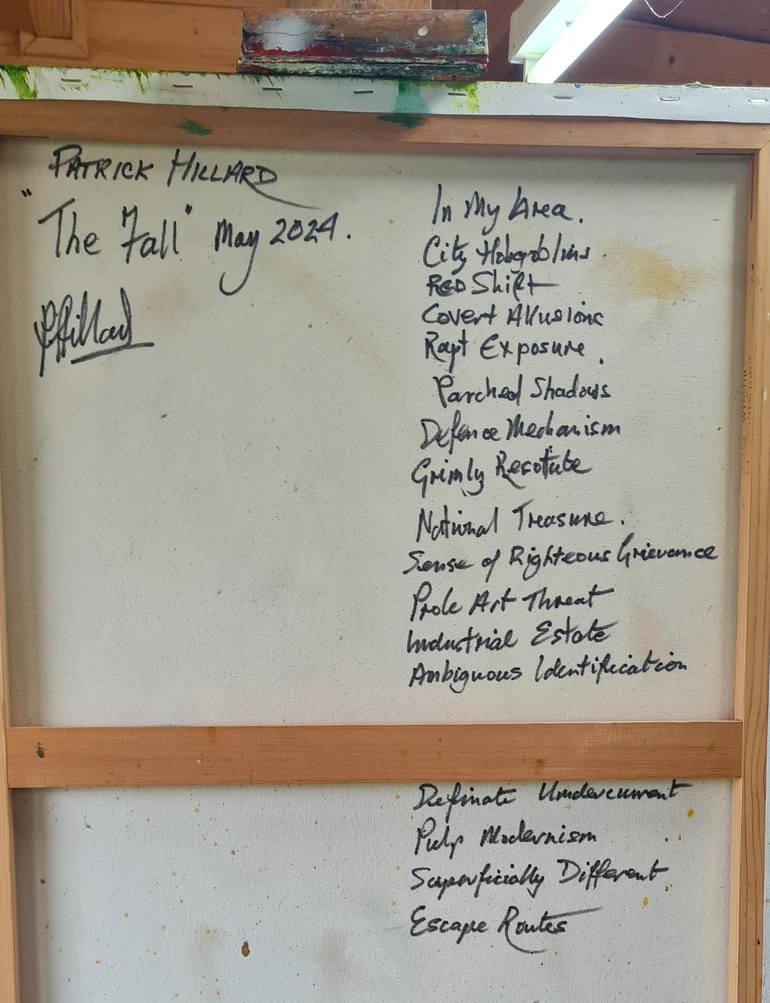 PATRICK HILLARD
"The Fall" May 2024.
PHillard
In My Area.
City Hobgoblins
RED Shift
Covert Allusions
Rapt Exposure.
Parched Shadows
Defence Mechanism
Grimly Resolute
National Treasure.
Sense of Righteous Grievance
Prole Art Threat
Industrial Estate
Ambiguous Identification
Definate Undercurrent
Pulp Modernism
Superficially Different
Escape Routes